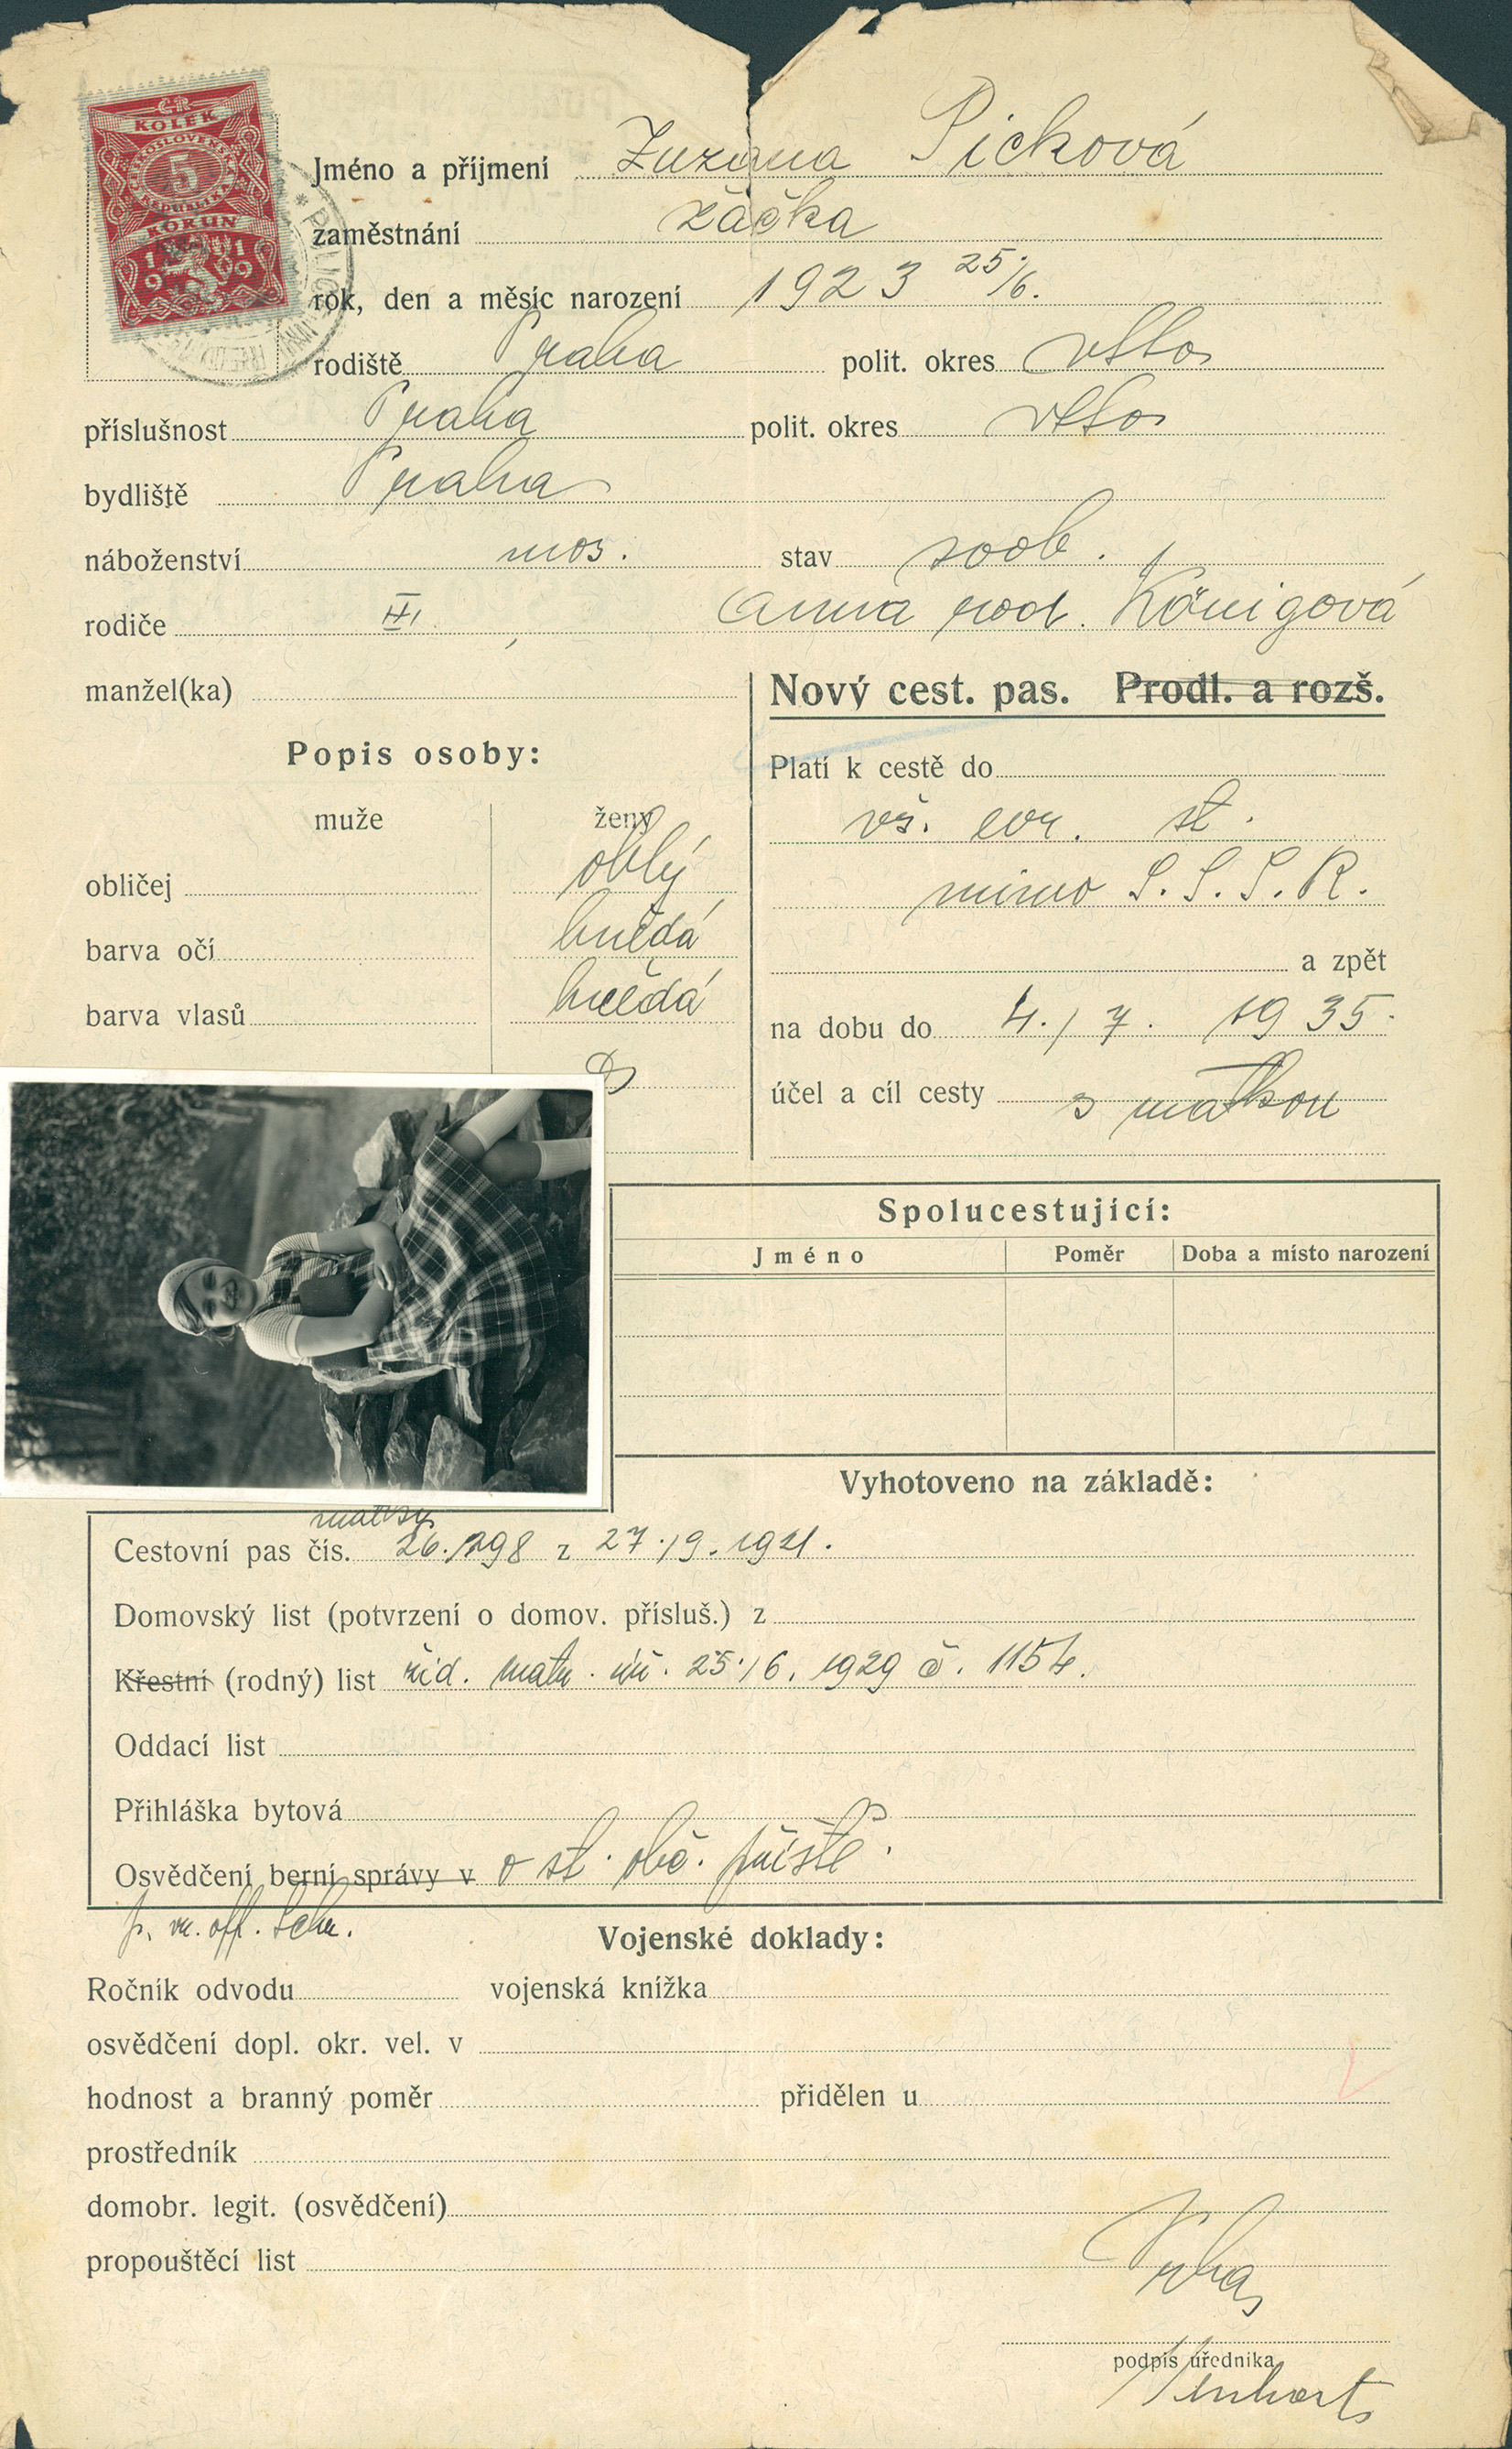 ČR
KOLEK
ČESKOSLOVENSKÁ
5
REPUBLIKA
KORUN
1919
Jméno a příjmení Zuzana Picková
zaměstnání žačka
rok, den a měsíc narození 1923 25/6.
rodiště Praha polit. okres
příslušnost Praha polit. okres
bydliště Praha
náboženství mos. stav svob.
rodiče Anna roz. Königová
manžel(ka)
Nový cest. pas. Prodl. a rozš.
Popis osoby:
muže ženy
obličej oblý
barva očí hnědá
barva vlasů hnědá
Platí k cestě do
vš. evr. st.
mimo S.S.S.R.
a zpět
na dobu do 4./7. 1935.
účel a cíl cesty s matkou
Spolucestující:
Jméno Poměr Doba a místo narození
Vyhotoveno na základě:
matky
Cestovní pas čís. z 27./9. 1921.
Domovský list (potvrzení o domov. přísluš.) z
Křestní (rodný) list žid. matr. 25./6. 1929 č. 1154.
Oddací list
Přihláška bytová
Osvědčení berní správy v o st. obč. příště.
Vojenské doklady:
Ročník odvodu vojenská knížka
osvědčení dopl. okr. vel. v
hodnost a branný poměr přidělen u
prostředník
domobr. legit. (osvědčení)
propouštěcí list
podpis úředníka